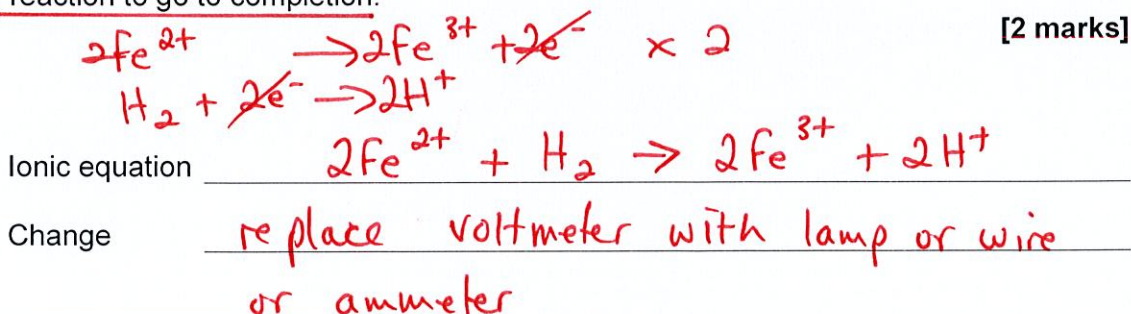 reaction to go to completion.
2Fe²⁺ → 2Fe³⁺ + 2e⁻ × 2
[2 marks]
H₂ + 2e⁻ → 2H⁺
Ionic equation 2Fe²⁺ + H₂ → 2Fe³⁺ + 2H⁺
Change replace voltmeter with lamp or wire
or ammeter